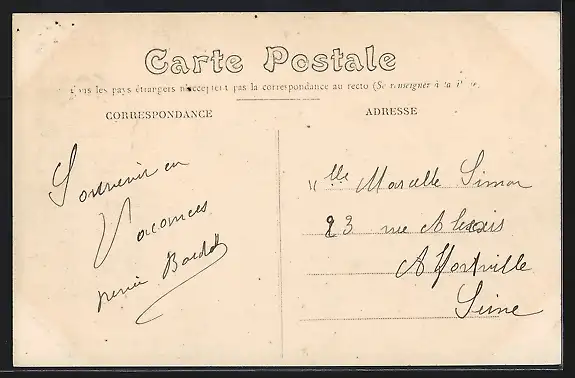 Carte Postale
Tous les pays étrangers n'acceptent pas la correspondance au recto (Se renseigner à la Poste)
CORRESPONDANCE
ADRESSE
Souvenir en
Vacances
Mlle Marcelle Simon
23 rue Alexis
Alfortville
Seine